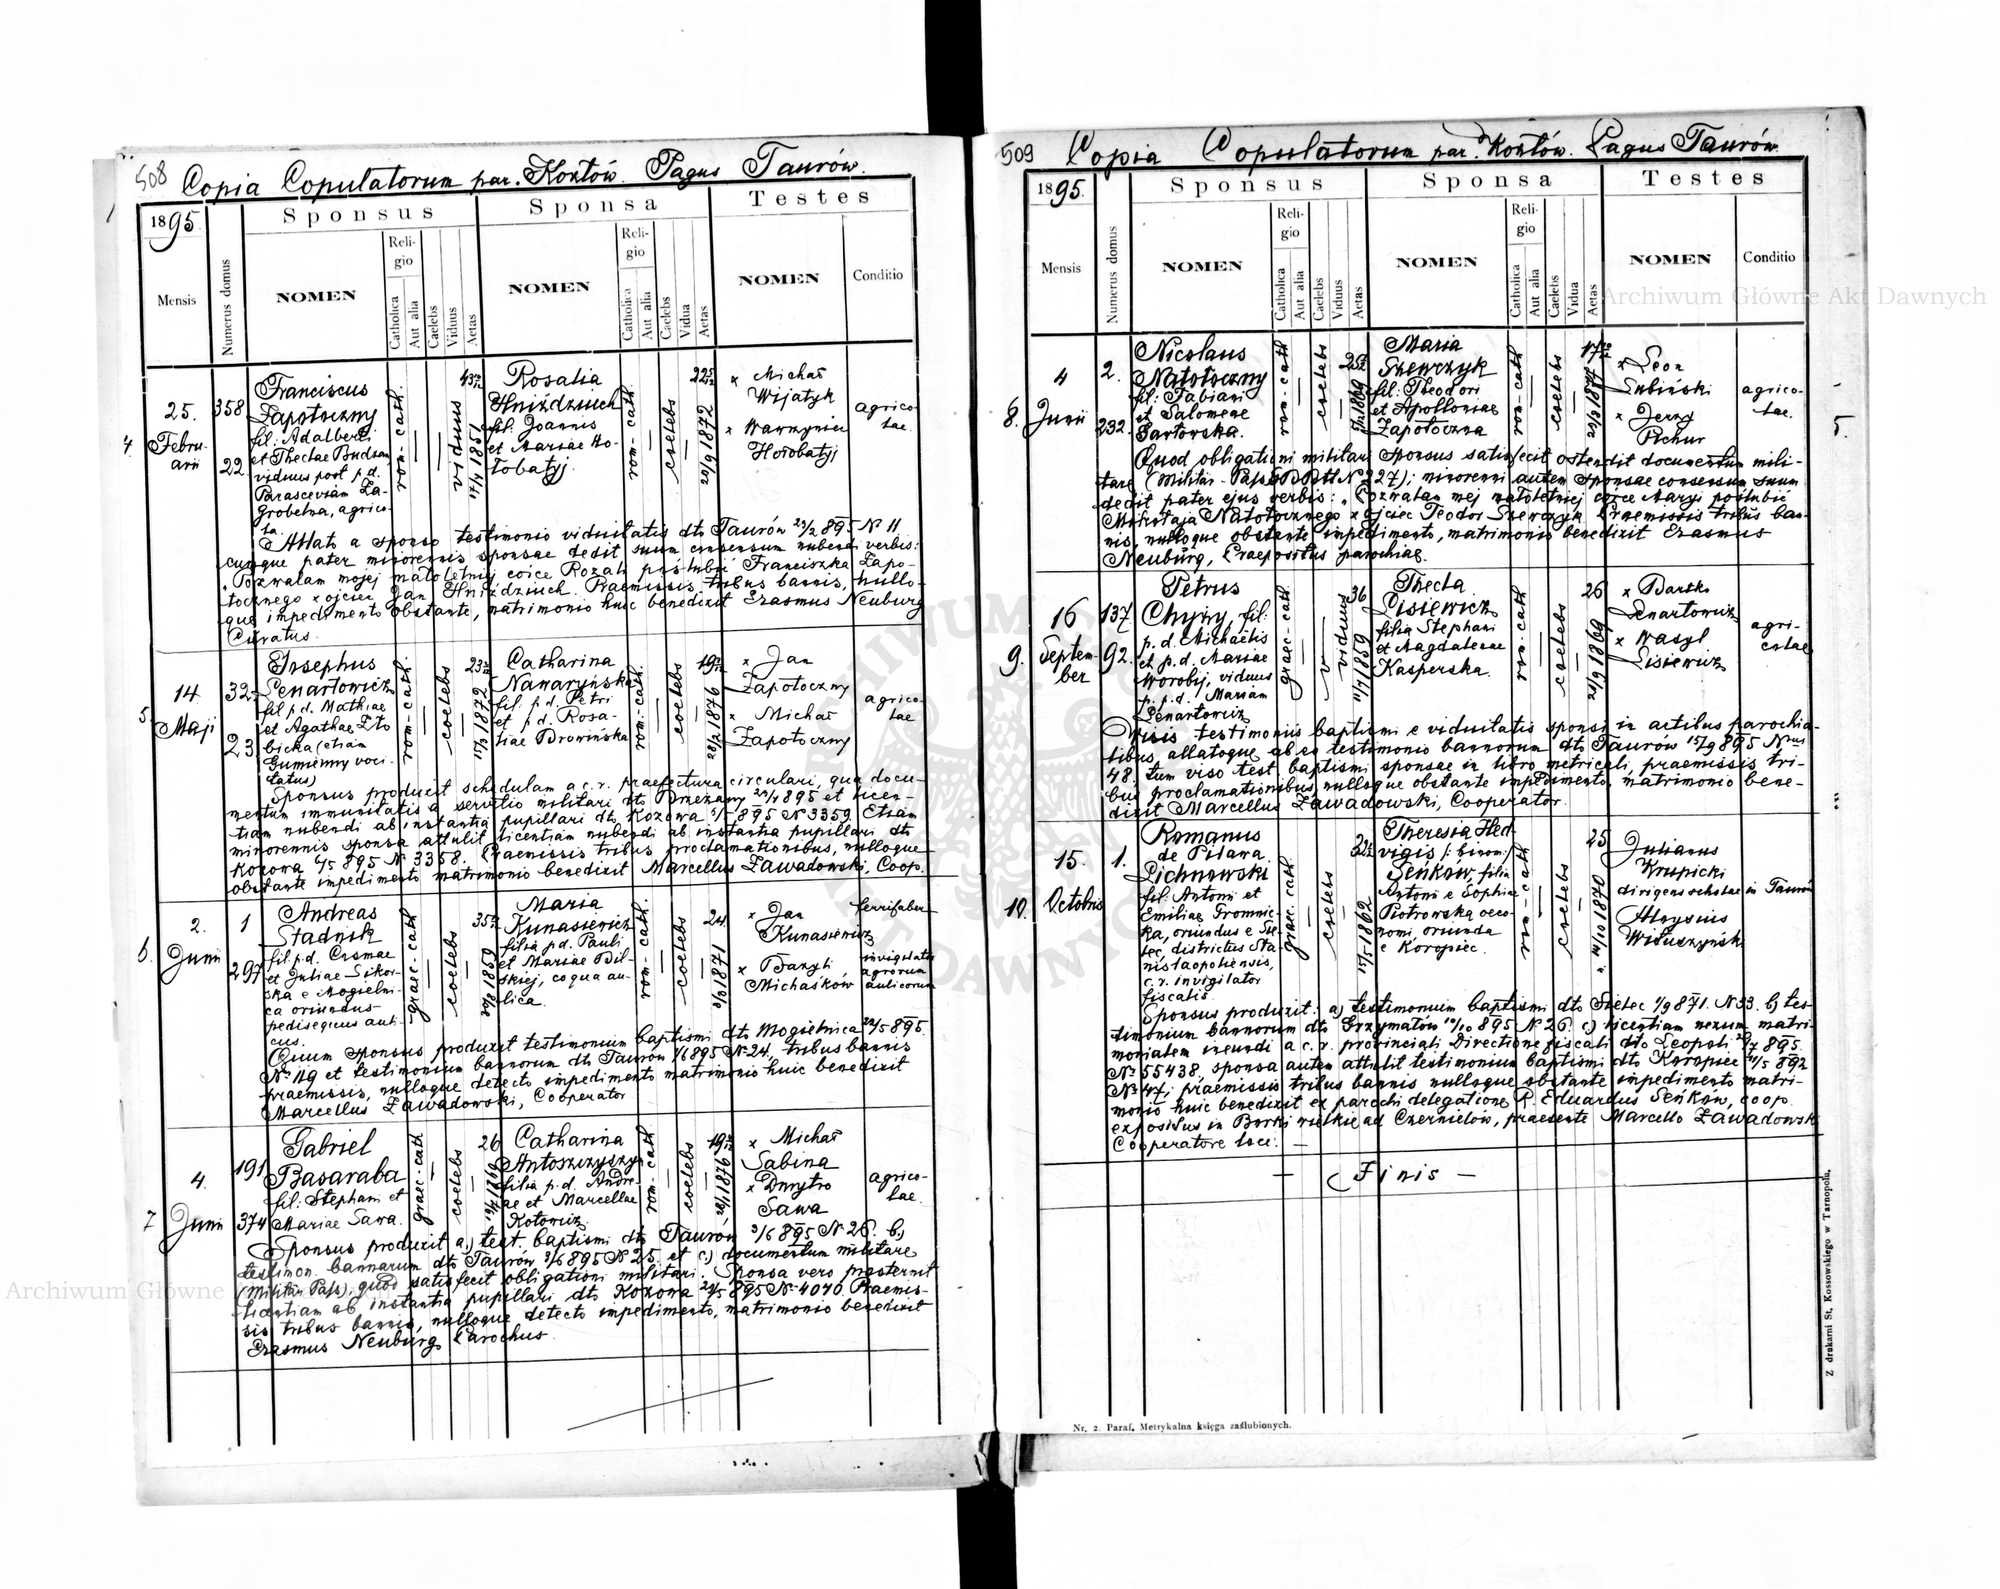 508 Copia Copulatorum par. Kozłów. Pagus Taurów.
1895.
Sponsus
Sponsa
Testes
Mensis
Numerus domus
NOMEN
Religio
Catholica
Aut alia
Caelebs
Viduus
Aetas
NOMEN
Religio
Catholica
Aut alia
Caelebs
Vidua
Aetas
NOMEN
Conditio
4.
25.
Februarii
358
22.
Franciscus
Zapotoczny
fil: Adalberti
et Theclae Budzan
viduus post p.d.
Parasceviam Za-
Grobelna, agrico-
la.
rom-cath.
viduus
Rosalia
Hniździuch
fil: Joannis
et Mariae Ho-
łobatyj.
rom-cath.
coelebs
x Michał
Wijatyk
x Wawrzyniec
Hołobatyj
agrico-
lae.
Allato a sponso testimonio viduitatis dto Taurów 23/2 895 № 11
cumque pater minorennis sponsae dedit suum consensum nubendi verbis:
„Pozwalam mojej małoletniej córce Rozali poślubić Franciszka Zapo-
tocznego x ojciec Jan Hniździuch. Praemissis tribus bannis, nullo-
que impedimento obstante, matrimonio huic benedixit Erasmus Neuburg
Curatus.
5.
14.
Maji
32.
23
Josephus
Lenartowicz
fil p.d. Mathiae
et Agathae Zło-
bicka (etiam
Gumienny voci-
tatus)
rom-cath.
coelebs
Catharina
Nawaryńska
fil. p.d. Petri
et p.d. Rosa-
liae Browińska
rom-cath.
coelebs
x Jan
Zapotoczny
x Michał
Zapotoczny
agrico-
lae
Sponsus produxit schedulam a c.r. praefectura circulari, qua docu-
mentum immunitatis a servitio militari dto Brzeżany 895 et licen-
tiam nubendi ab instantia pupillari dto Kozowa 895 № 3359. Etiam
minorennis sponsa attulit licentiam nubendi ab instantia pupillari dto
Kozowa 895 № 3358. Praemissis tribus proclamationibus, nulloque
obstante impedimento matrimonio benedixit Marcellus Zawadowski, Coop.
6.
2.
Junii
1
297
Andreas
Stadnik
fil p.d. Cosmae
et Juliae Sikor-
ska e Mogielni-
ca oriundus
pedisequus auli-
cus.
graec-cath
coelebs
Maria
Kunasiewicz
filia p.d. Pauli
et Mariae Bil-
skiej, coqua au-
lica.
rom-cath.
coelebs
24.
x Jan
Kunasiewicz
x Bazyli
Michaśków
ferrifaber
invigilator
agrorum
aulicorum
Quum sponsus produxit testimonium baptismi dto Mogielnica 22/5 895.
№ 119 et testimonium bannorum dto Taurów 1/6 895 № 24. tribus bannis
praemissis, nulloque detecto impedimento matrimonio huic benedixit
Marcellus Zawadowski, Cooperator
7
4.
Junii
191
374
Gabriel
Basaraba
fil. Stephani et
Mariae Sawa.
graec-cath
coelebs
26
Catharina
Antoszczyszyn
filia p.d. Andre-
ae et Marcellae
Kotowicz.
rom-cath
coelebs
x Michał
Sabina
x Dmytro
Sawa
agrico-
lae.
Sponsus produxit a.) test. baptismi dto Taurów 2/6 895 № 26. b.)
testimon. bannorum dto Taurów 2/6 895 № 25. et c.) documentum militare
(Militär Paß), quod satisfecit obligationi militari. Sponsa vero
licentiam ab instantia pupillari dto Kozowa 895 № 4040. Praemis-
sis tribus bannis, nulloque detecto impedimento, matrimonio benedixit
Erasmus Neuburg Parochus.
509 Copia Copulatorum par. Kozłów. Pagus Taurów
1895.
Sponsus
Sponsa
Testes
Mensis
Numerus domus
NOMEN
Religio
Catholica
Aut alia
Caelebs
Viduus
Aetas
NOMEN
Religio
Catholica
Aut alia
Caelebs
Vidua
Aetas
NOMEN
Conditio
8.
4
Junii
2.
232.
Nicolaus
Natotoczny
fil: Fabiani
et Salomeae
Sartorska.
rom-cath
coelebs
Maria
Szewczyk
fil: Theodori
et Apolloniae
Zapotoczna
rom-cath
coelebs
x Leon
Lubiński
x Jerzy
Pichur
agrico-
lae.
Quod obligationi militari sponsus satisfecit ostendit documentum mili-
tare (Militär-Paß № 227); minorenni autem sponsae consensum suum
dedit pater ejus verbis: „Pozwalam mej małoletniej córce Maryi poślubić
Mikołaja Natotocznego x ojciec Teodor Szewczyk. Praemissis tribus ban-
nis, nulloque obstante impedimento, matrimonio benedixit Erasmus
Neuburg, Praepositus parochiae.
9.
16
Septem-
ber
137
92.
Petrus
Chyży, fil:
p.d. Michaelis
et p.d. Mariae
Worobij, viduus
p. p.d. Mariam
Lenartowicz
graec-cath
viduus
36
11/7 1859
Thecla
Lisiewicz
filia Stephani
et Magdalenae
Kasperska.
rom-cath
coelebs
26
x Bartko
Lenartowicz
x Wasyl
Lisiewicz
agri-
colae
Visis testimoniis baptismi e viduitatis sponsi in actibus parochia-
libus allatoque ab eo testimonio bannorum dto Taurów 15/9 895 №
48. tum viso test baptismi sponsae in libro metricali, praemissis tri-
bus proclamationibus, nulloque obstante impedimento, matrimonio bene-
dixit Marcellus Zawadowski, Cooperator.
10.
15.
Octobris
1.
Romanus
de Pilawa
Lichnowski
fil: Antoni et
Emiliae Gromnic-
ka, oriundus e Sie-
lec, districtus Sta-
nislaopoliensis,
c.r. invigilator
fiscalis.
graec. cath
coelebs
Theresia Hed-
vigis /: binom:/
Seńków, filia
Antoni e Sophiae
Piotrowska oeco-
nomi, oriunda
e Koropiec.
rom-cath
coelebs
25
Julianus
Krupicki
dirigens scholae in Taurów
Aloysius
Wituszyński
Sponsus produxit: a) testimonium baptismi dto Sielec 1/9 871. № 33. b) tes-
timonium bannorum dto Grzymałów 895 № 26. c) licentiam nexum matri-
monialem ineundi a c.r. provinciali Directione fiscali dto Leopoli 895.
№ 55438, sponsa autem attulit testimonium baptismi dto Koropiec 892
№ 47; praemissis tribus bannis nulloque obstante impedimento matri-
monio huic benedixit ex parochi delegatione P. Eduardus Seńków, coop.
expositus in Borki wielkie ad Czernielów, praesente Marcello Zawadowski
Cooperatore loci. —
— Finis —
Nr. 2. Paraf. Metrykalna księga zaślubionych.
Z drukarni St. Kossowskiego w Tarnopolu.
Archiwum Główne Akt Dawnych